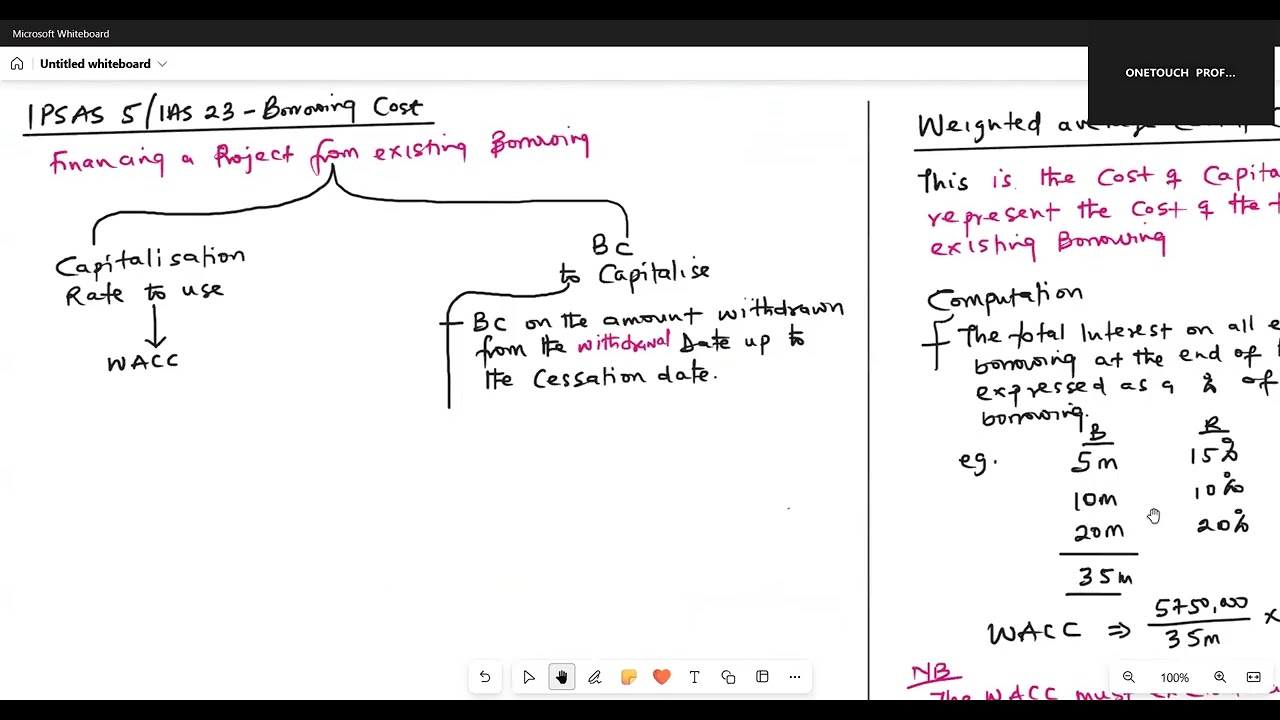 Microsoft Whiteboard
Untitled whiteboard
ONETOUCH PROF...
IPSAS 5/IAS 23 - Borrowing Cost
Financing a Project from existing Borrowing
Capitalisation
Rate to use
WACC
BC
to Capitalise
BC on the amount withdrawn
from the withdrawal Date up to
the Cessation date.
Weighted average
This is the Cost of Capita
represent the Cost of the
existing Borrowing
Computation
The total Interest on all e
borrowing at the end of
expressed as a % of
borrowing.
B R
eg. 5m 15%
10m 10%
20m 20%
35m
WACC ⇒ 5750,000 x
35m
NB
The WACC must
100%